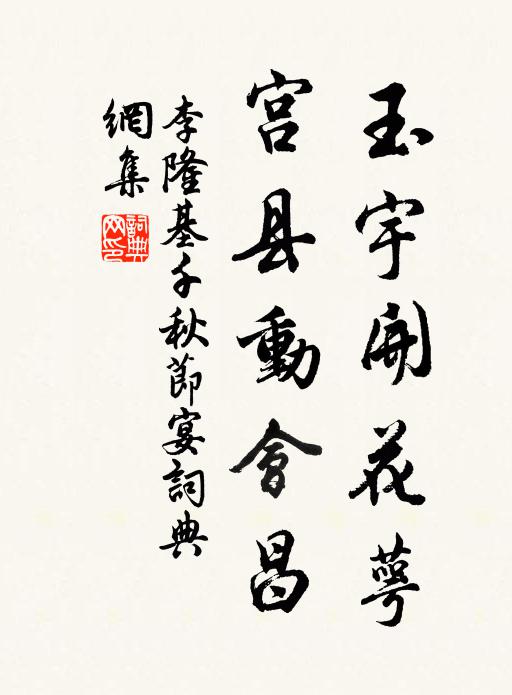 玉宇開花萼
宮县動會昌
李隆基千秋節宴詞典
網集
詞典網印